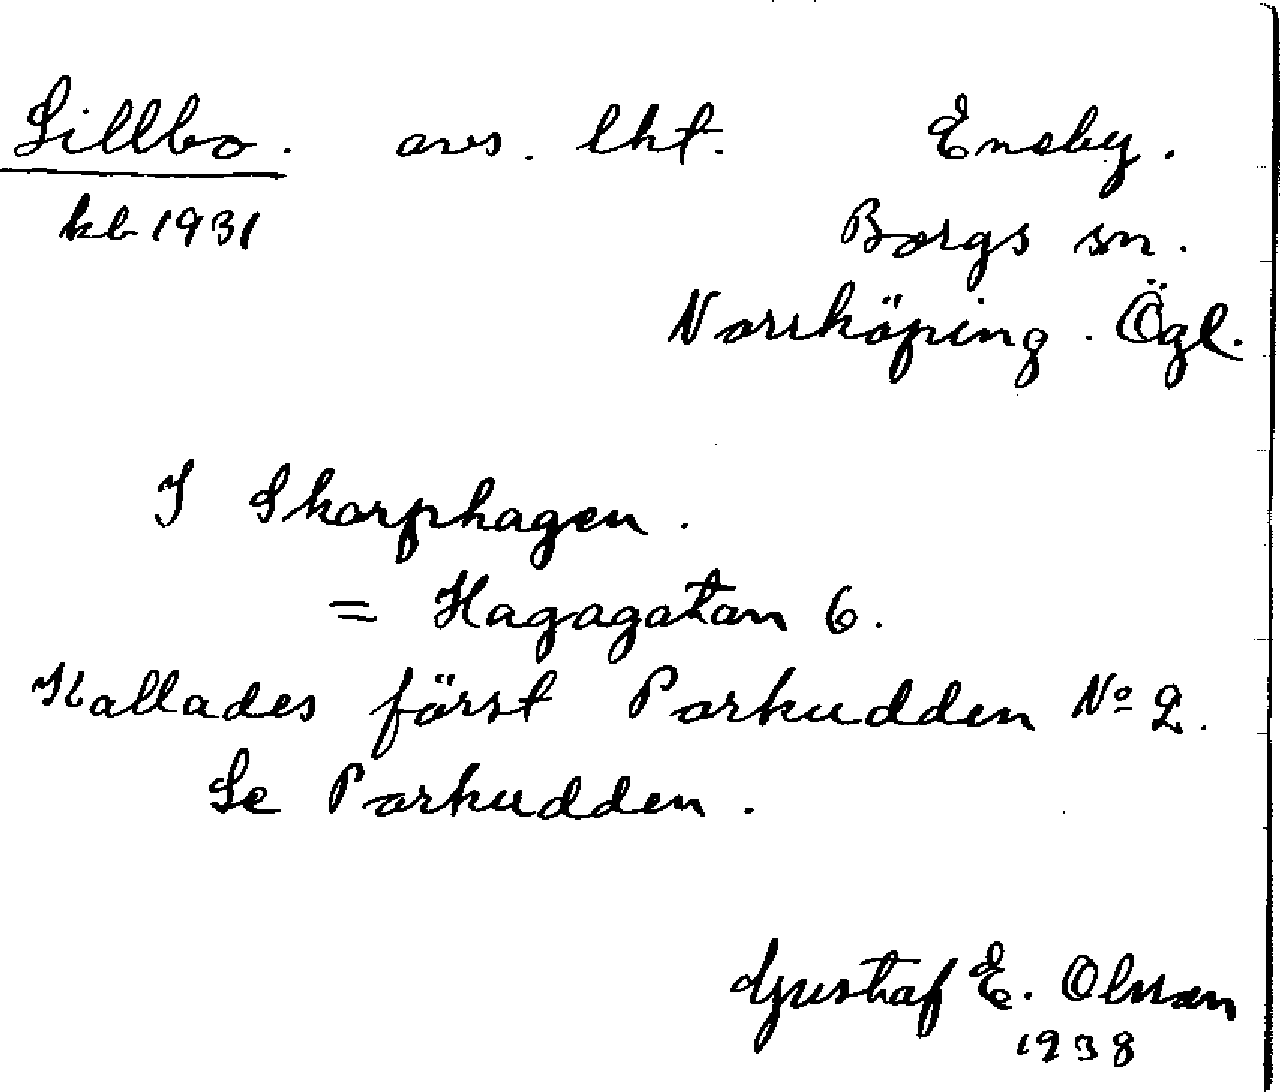 Lillbo. avs. lht. Eneby.
kb 1931 Borgs sn.
Norrköping. Ögl.
I Skarphagen.
= Hagagatan 6.
Kallades först Parkudden No 2.
Se Parkudden.
Gustaf E. Olsson
1938